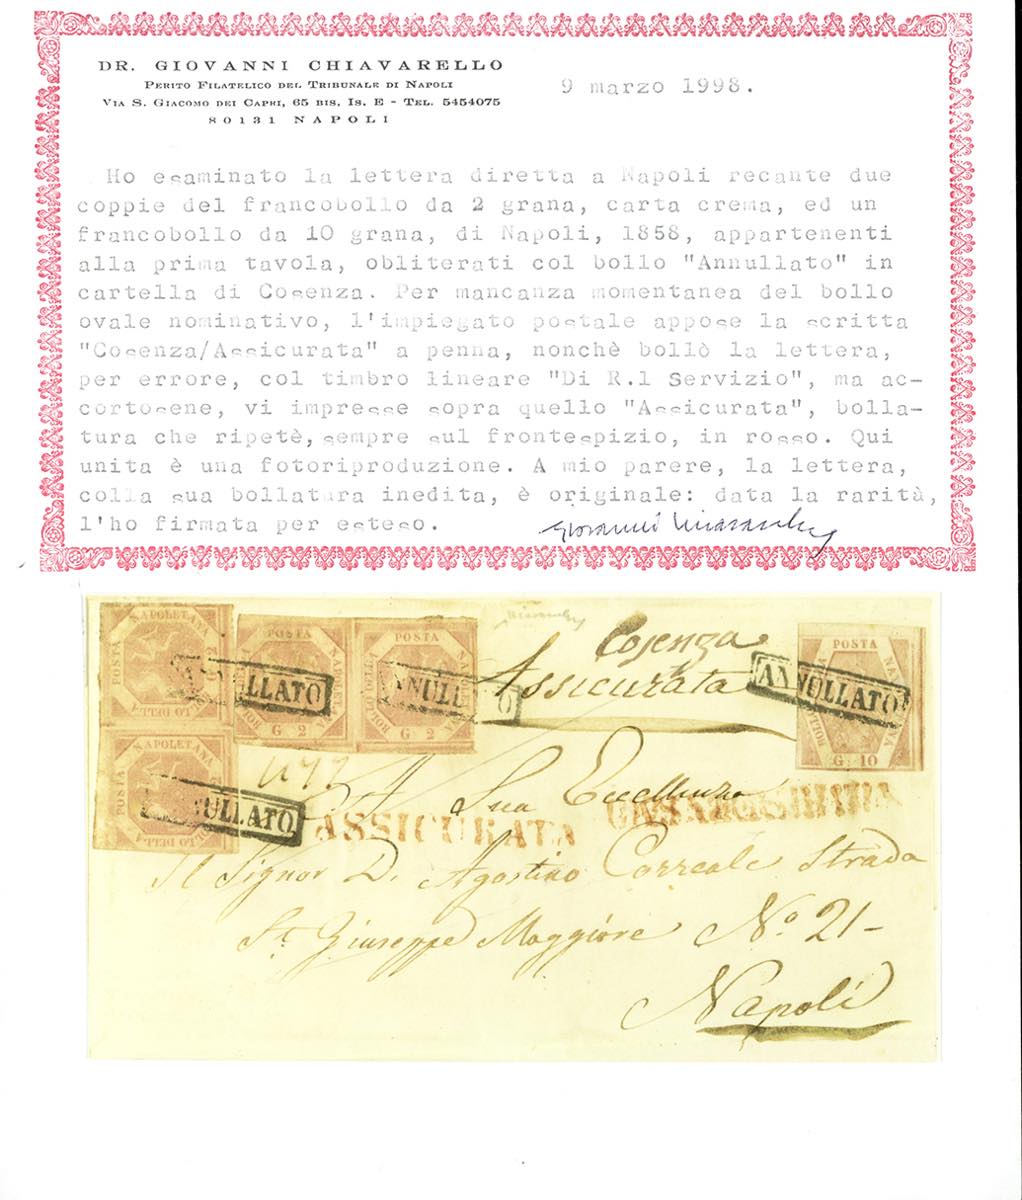 DR. GIOVANNI CHIAVARELLO
PERITO FILATELICO DEL TRIBUNALE DI NAPOLI
VIA S. GIACOMO DEI CAPRI, 65 BIS, IS. E - TEL. 5454075
80131 NAPOLI
9 marzo 1998.
Ho esaminato la lettera diretta a Napoli recante due
coppie del francobollo da 2 grana, carta crema, ed un
francobollo da 10 grana, di Napoli, 1858, appartenenti
alla prima tavola, obliterati col bollo "Annullato" in
cartella di Cosenza. Per mancanza momentanea del bollo
ovale nominativo, l'impiegato postale appose la scritta
"Cosenza/Assicurata" a penna, nonchè bollò la lettera,
per errore, col timbro lineare "Di R.l Servizio", ma ac-
cortosene, vi impresse sopra quello "Assicurata", bolla-
tura che ripetè, sempre sul frontespizio, in rosso. Qui
unita è una fotoriproduzione. A mio parere, la lettera,
colla sua bollatura inedita, è originale: data la rarità,
l'ho firmata per esteso.
Giovanni Chiavarello
POSTA NAPOLETANA BOLLO DELLA G 2
POSTA NAPOLETANA BOLLO DELLA G 2
POSTA NAPOLETANA BOLLO DELLA G 2
POSTA NAPOLETANA BOLLO DELLA G 2
ANNULLATO
ANNULLATO
ANNULLATO
Cosenza
Assicurata
POSTA NAPOLETANA BOLLO DELLA G 10
ANNULLATO
A Sua Eccellenza
ASSICURATA
Il Signor D. Agostino Correale Strada
St. Giuseppe Maggiore No. 21-
Napoli